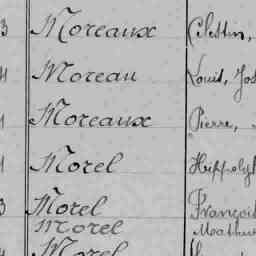 3 Moreaux Célestin,
4 Moreau Louis, Jos
1 Moreaux Pierre,
1 Morel Hippolyt
3 Morel François
Morel Mathur
4 Morel